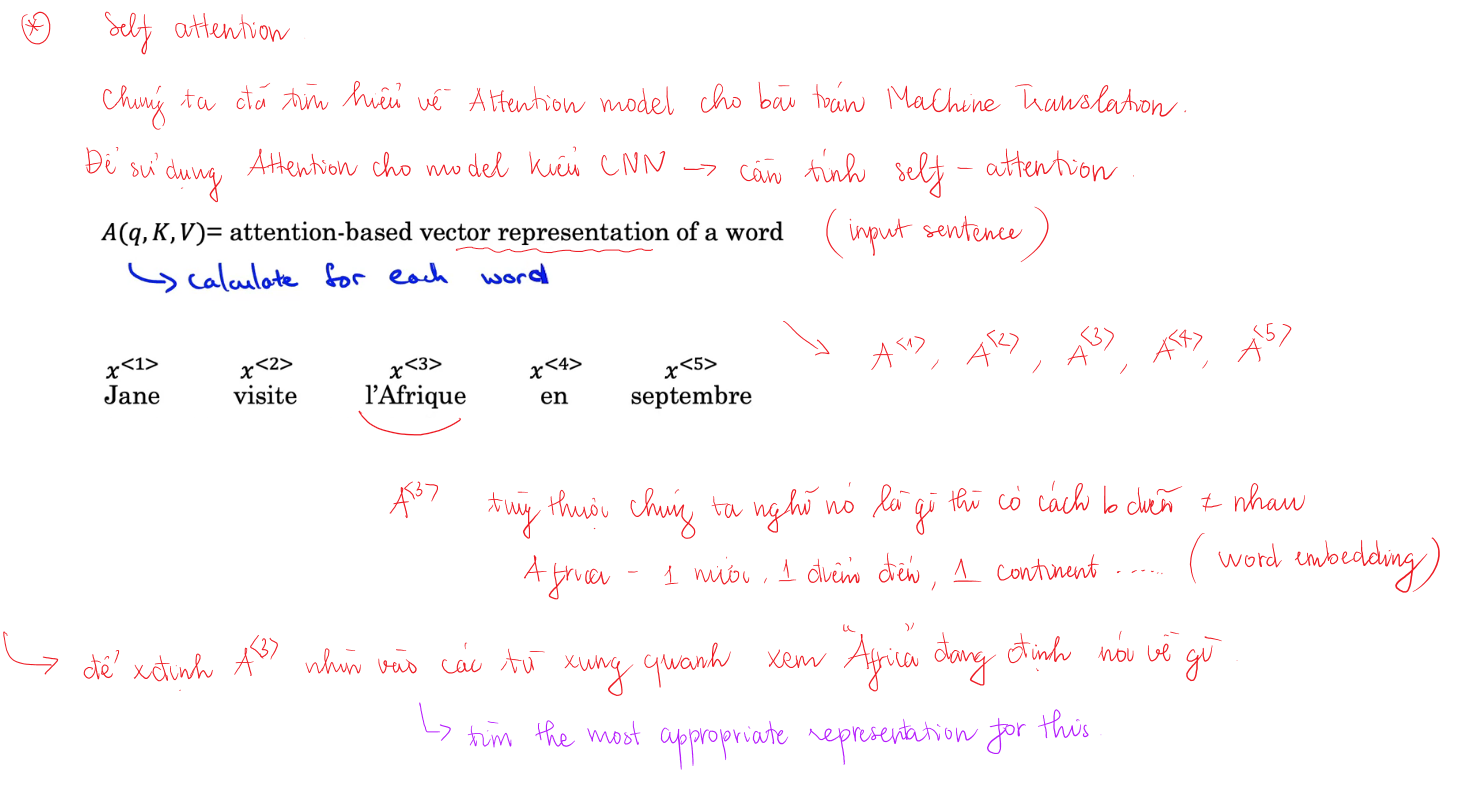 * Self attention
Chúng ta đã tìm hiểu về Attention model cho bài toán Machine Translation.
Để sử dụng Attention cho model kiểu CNN → cần tính self - attention.
A(q, K, V)= attention-based vector representation of a word (input sentence)
↳ calculate for each word
→ A<1>, A<2>, A<3>, A<4>, A<5>
x<1> x<2> x<3> x<4> x<5>
Jane visite l’Afrique en septembre
A<3> tùy thuộc chúng ta nghĩ nó là gì thì có cách b diễn ≠ nhau
Africa - 1 nước, 1 điểm đến, 1 continent ..... (word embedding)
↳ để xđịnh A<3> nhìn vào các từ xung quanh xem "Africa" đang định nói về gì
↳ tìm the most appropriate representation for this